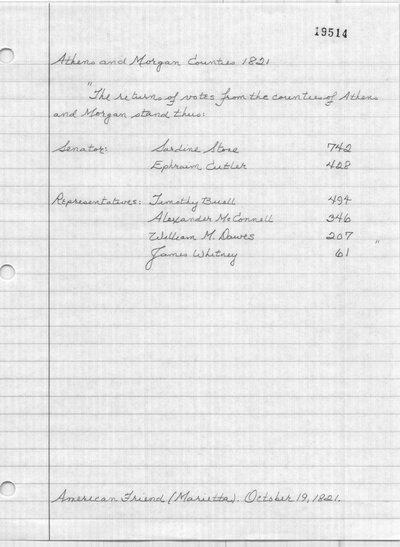 19514
Athens and Morgan Counties 1821
"The returns of votes from the counties of Athens
and Morgan stand thus:
Senator: Sardine Stone 742
Ephraim Cutler 428
Representatives: Timothy Buell 494
Alexander McConnell 346
William M. Dawes 207
James Whitney 61 "
American Friend (Marietta). October 19, 1821.